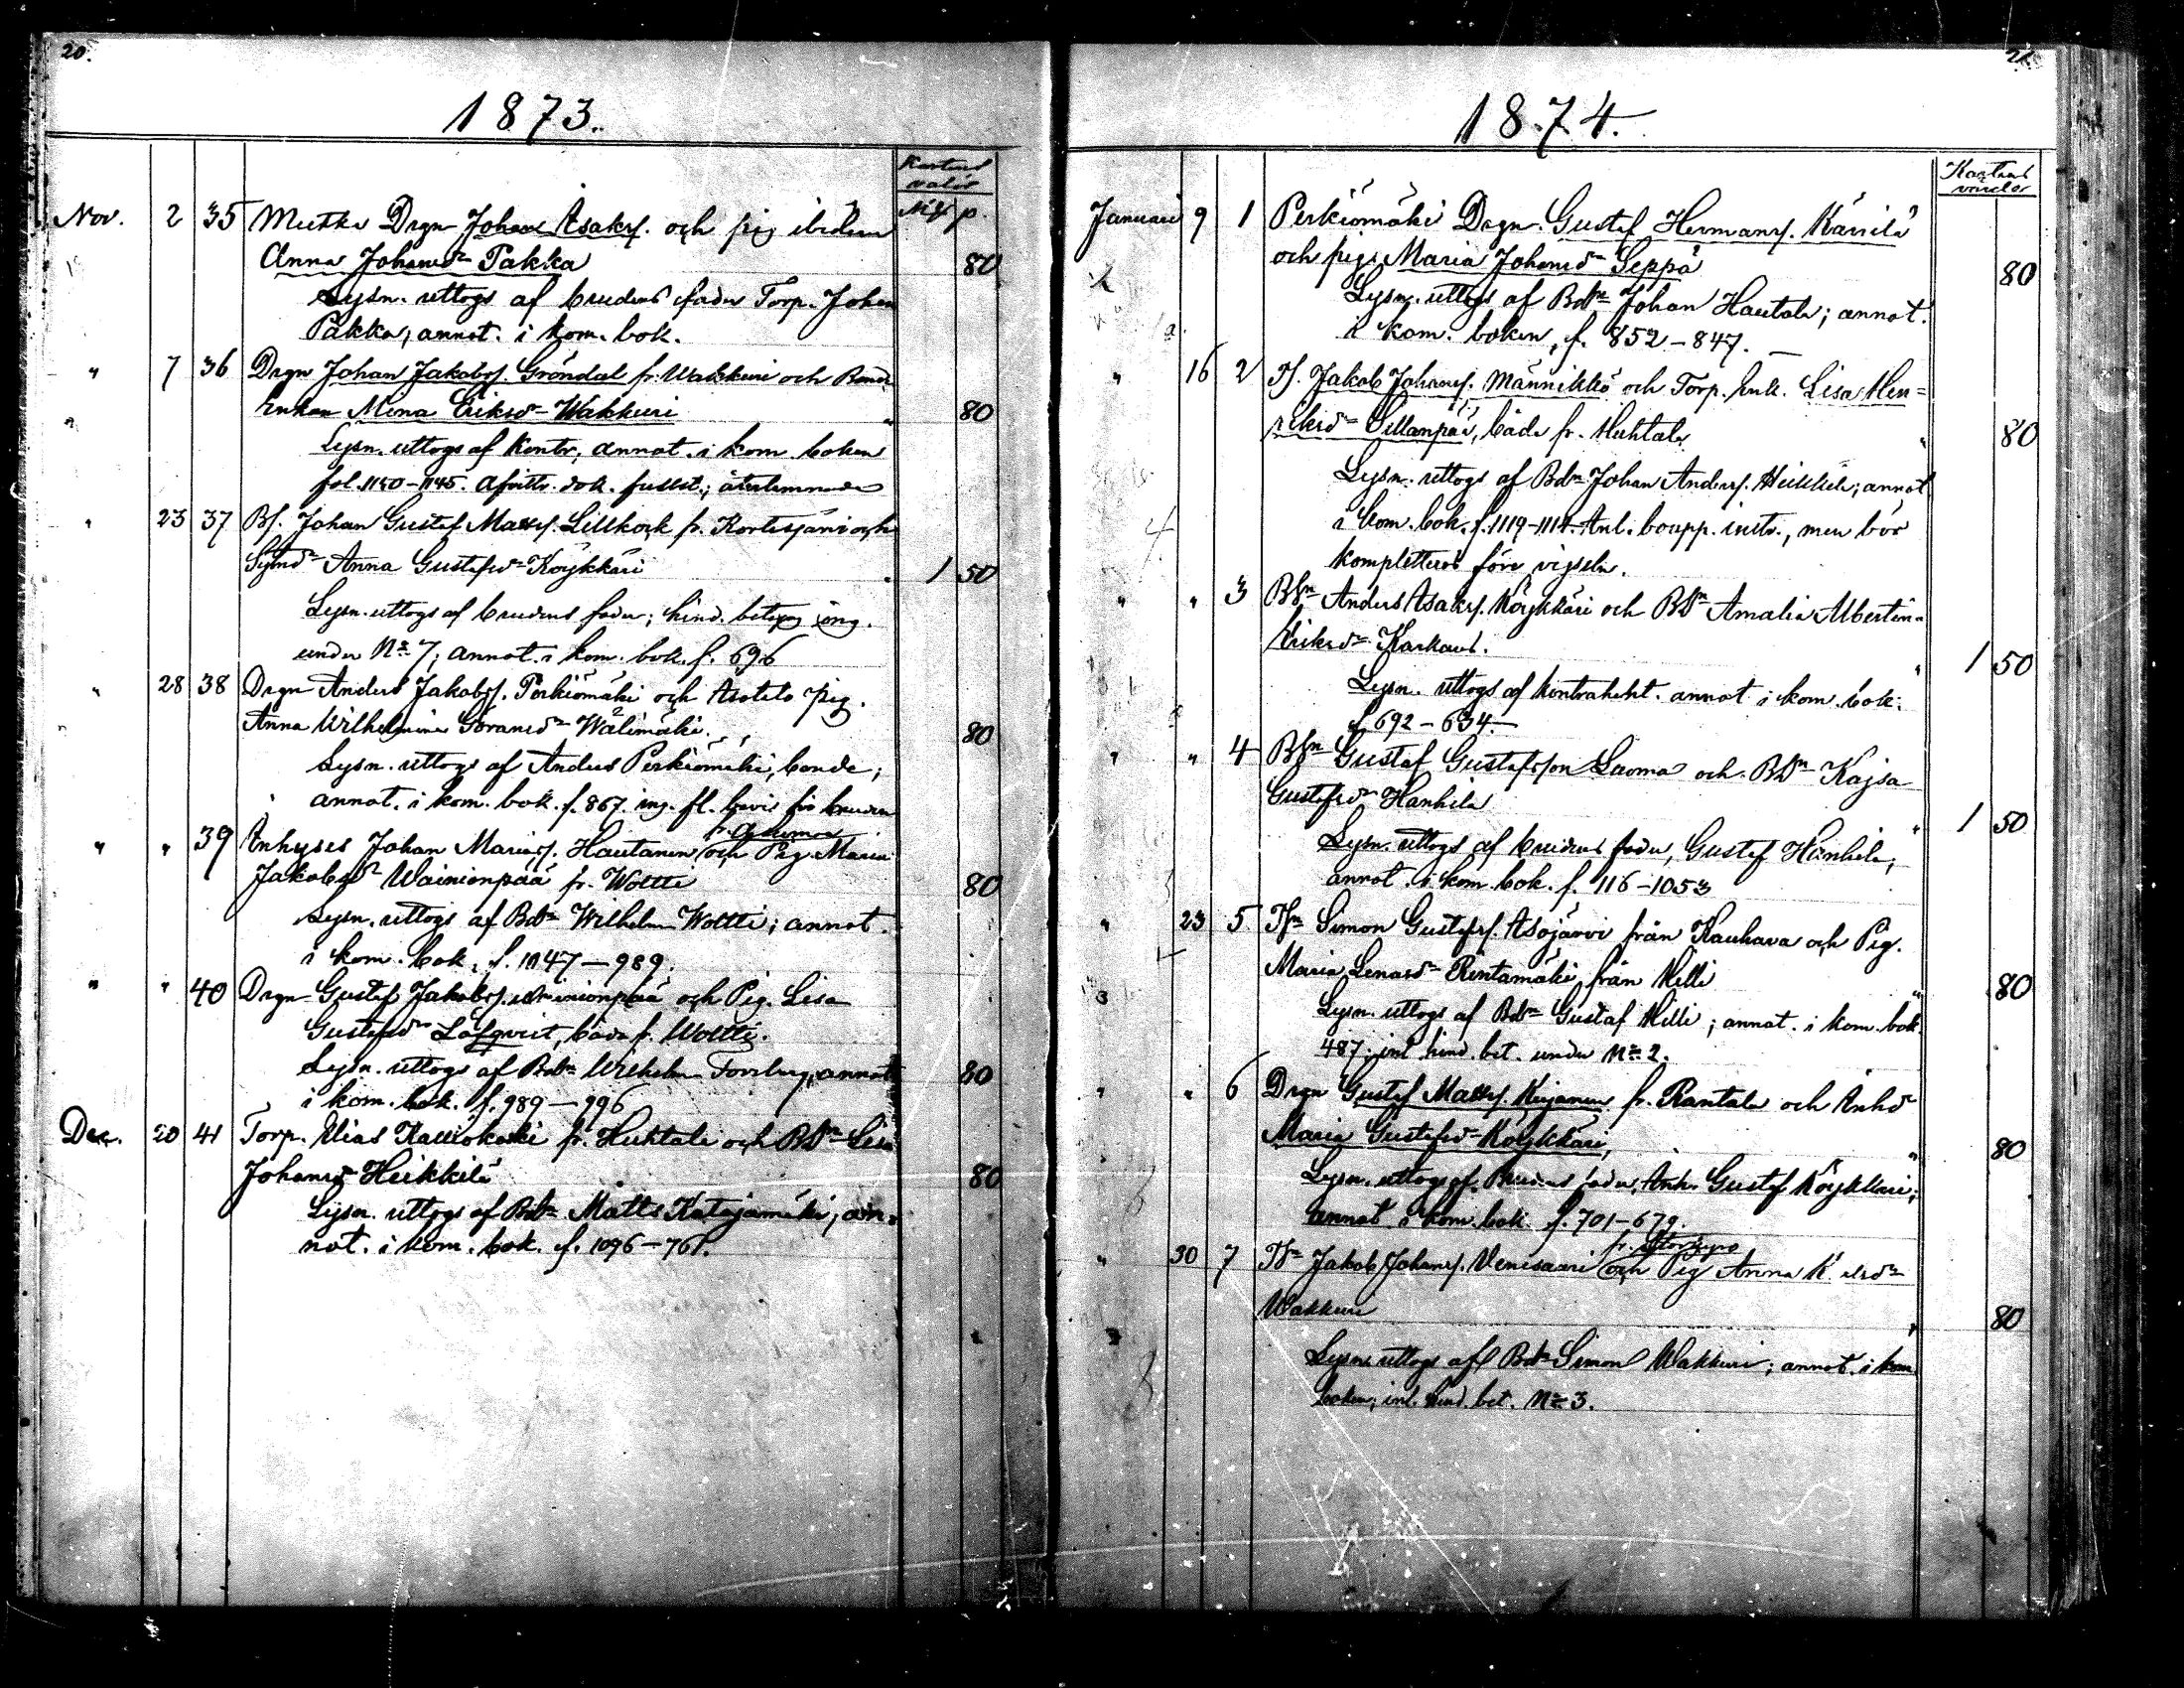 20.
1873.
Kastens valör
Mk p.
Nov. 2 35 Mutka Drgn Johan Isaksf. och pig ibidem
Anna Johansdr Pakka 80
Lysn. uttogs af brudens fader Torp. Johan
Pakka, annot. i kom. bok.
" 7 36 Drgn Johan Jakobsf. Gröndal fr. Wakkuri och Bonde
Enkan Mina Eriksdr Wakkuri " 80
Lysn. uttogs af kontr; annot. i kom. boken
fol. 1150-1145. dok.
" 23 37 Bf. Johan Gustaf Mattsf. Lillkock fr. Kortesjärvi och
Anna Gustafsdr Köykkäri " 1 50
Lysn. uttogs af brudens fader; hind. betyg ing.
under No 7; annot. i kom. bok. f. 696
" 28 38 Drgn Anders Jakobsf. Perkiömäki och Isotalo pig.
Anna Wilhelmina Göransdr Wälimäki 80
Lysn. uttogs af Anders Perkiömäki, bonde;
annot. i kom. bok. f. 867. ing. fl. bevis för bruden
" " 39 Inhyses Johan Mariasf. Hautanen och Pig Maria
Jakobsdr Wainionpää fr. Woltti 80
Lysn. uttogs af Bdn Wilhelm Woltti; annot.
i kom. bok. f. 1147-989.
" " 40 Drgn Gustaf Jakobsf. Wainionpää och Pig. Lisa
Gustafsdr Löfqvist, båda fr. Woltti.
Lysn. uttogs af Bdn Wilhelm Forsberg, annot. 80
i kom. bok. f. 989-996
Dec. 20 41 Torp. Elias Kalliokoski fr. Huhtala och BDn Lisa
Johansdr Heikkilä 80
Lysn. uttogs af Bdn Matts Katajamäki; an-
not. i kom. bok. f. 1096-761.
21.
1874.
Kastens
Januari 9 1 Perkiömäki Drgn. Gustaf Hermansf. Kärrilä
och piga Maria Johansdr Seppä 80
Lysn. uttogs af Bdn Johan Hautala; annot.
i kom. boken, f. 852-847.
" 16 2 Tf. Jakob Johansf. Männikkö och Torp. Enk. Lisa Hen-
riksdr Sillanpää, båda fr. Huhtala " 80
Lysn. uttogs af Bdn Johan Andersf. Heikkilä; annot
i kom. bok. f. 1119-1114. Anl. boupp. instr., men bör
kompletteras före vigseln.
" " 3 BSn Anders Isaksf. Köykkäri och BDn Amalia Albertina
Eriksdr Karkaus. " 1 50
Lysn. uttogs af kontrahent. annot i kom. bok.
f. 692-634.
" " 4 BSn Gustaf Gustafsson Luoma och BDn Kajsa
Gustafsdr Hanhila " 1 50
Lysn. uttogs af brudens fader, Gustaf Hanhila;
annot. i kom. bok. f. 116-1053
" 23 5 TSn Simon Gustafsf. Isojärvi från Kauhava och Pig.
Maria Lenasdr Rintamäki från Hilli " 80
Lysn. uttogs af Bdn Gustaf Hilli; annot. i kom. bok.
487; inl. hind. bet. under No 2.
" " 6 Drgn Gustaf Mattsf. Kujanen fr. Rantala och Inhdr
Maria Gustafsdr Köykkäri, " 80
Lysn. uttogs af Brudens fader, Inh. Gustaf Köykkäri;
annot i kom. bok. f. 701-679.
" 30 7 TSn Jakob Johansf. Venesaari fr. Storkyro och Pig Anna
Wakkuri " 80
Lysn. uttogs af Bdn Simon Wakkuri; annot. i kom.
boken; inl. hind. bet. No 3.